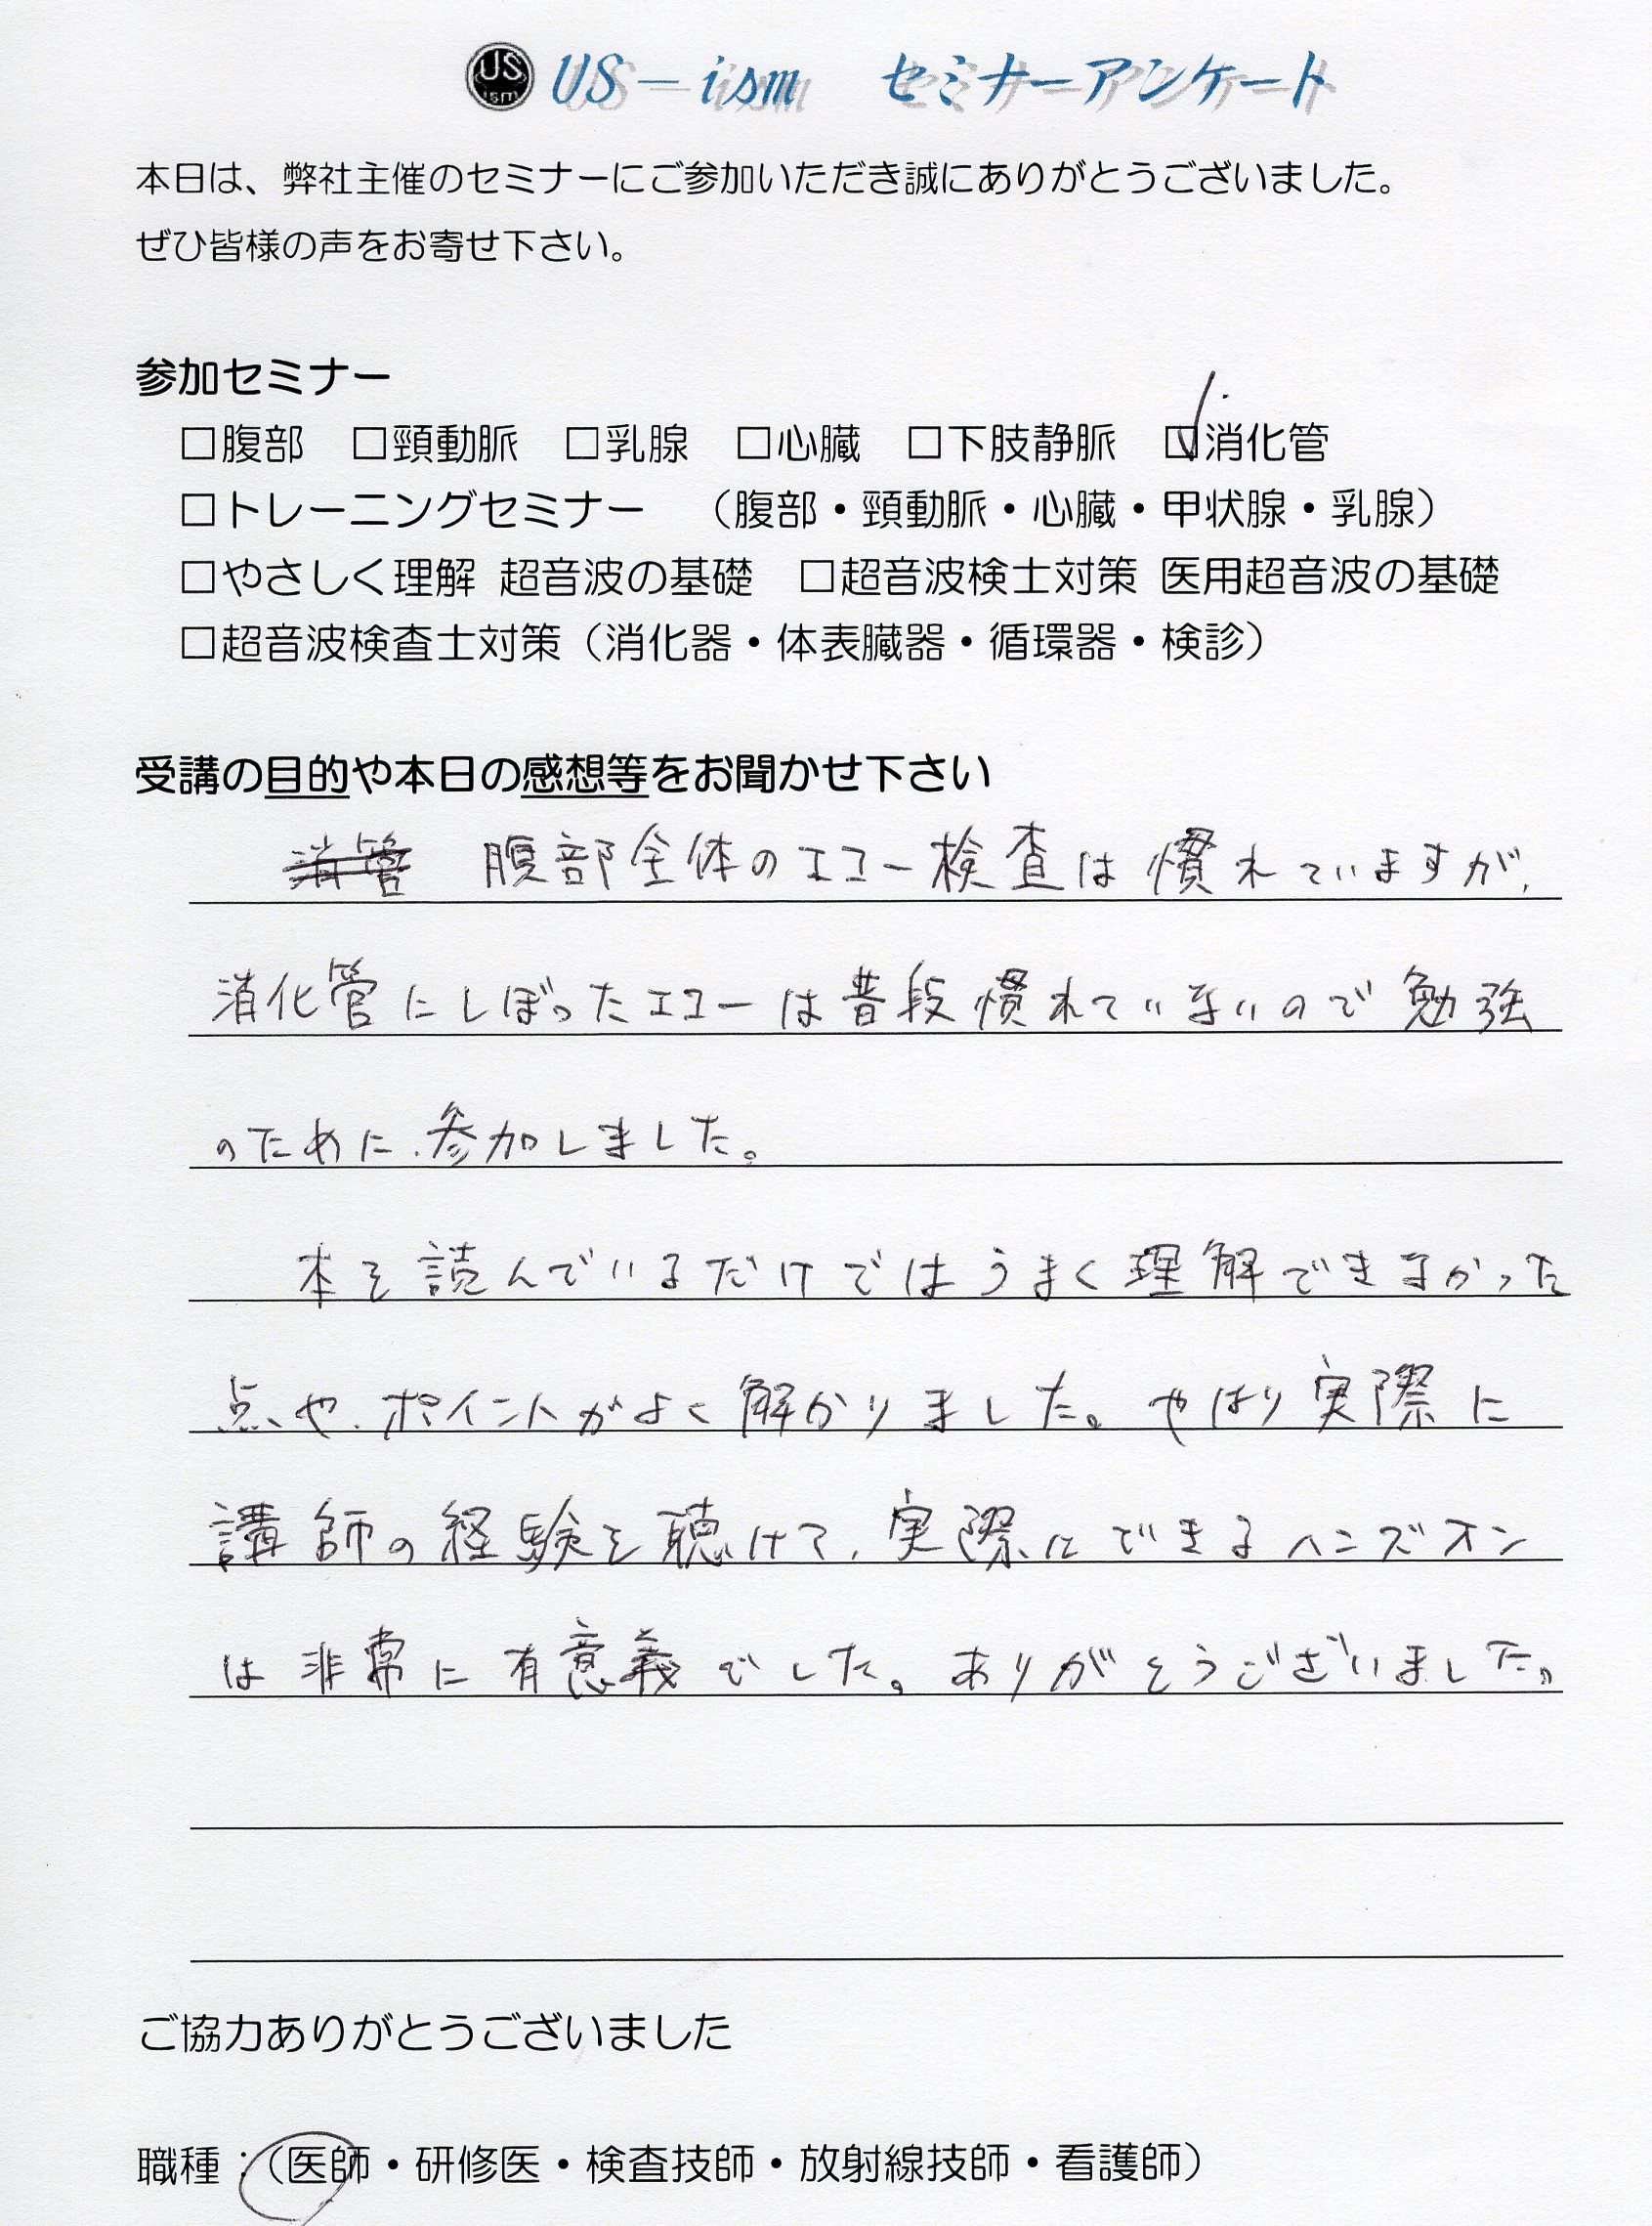 US ism US-ism セミナーアンケート
本日は、弊社主催のセミナーにご参加いただき誠にありがとうございました。
ぜひ皆様の声をお寄せ下さい。
参加セミナー
□腹部 □頸動脈 □乳腺 □心臓 □下肢静脈 ☑消化管
□トレーニングセミナー （腹部・頸動脈・心臓・甲状腺・乳腺）
□やさしく理解 超音波の基礎 □超音波検士対策 医用超音波の基礎
□超音波検査士対策（消化器・体表臓器・循環器・検診）
受講の目的や本日の感想等をお聞かせ下さい
消管 腹部全体のエコー検査は慣れていますが、
消化管にしぼったエコーは普段慣れていないので勉強
のために、参加しました。
本を読んでいるだけではうまく理解できなかった
点や、ポイントがよく解かりました。やはり実際に
講師の経験を聴けて、実際にできるハンズオン
は非常に有意義でした。ありがとうございました。
ご協力ありがとうございました
職種：（医師・研修医・検査技師・放射線技師・看護師）